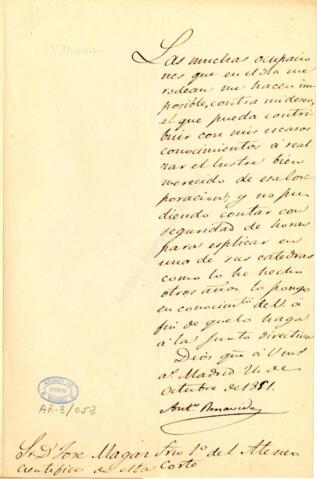 A. Benavides
Las muchas ocupacio
nes que en el dia me
rodean me hacen im
posible, contra mi deseo,
el que pueda contri
buir con mis escasos
conocimientos á real
zar el lustre bien
merecido de esa Cor
poracion; y no pu
diendo contar con
seguridad de horas
para esplicar en
una de sus catedras
como lo he hecho
otros años lo pongo
en conocimto de V. á
fin de que lo haga
á la Junta directiva
Dios gue á V. ms
as. Madrid 24 de
Octubre de 1851.
Anto. Benavides
AR-3/053
Sr. D. Jose Magáz Srio 1o. del Ateneo
cientifico de esta Corte